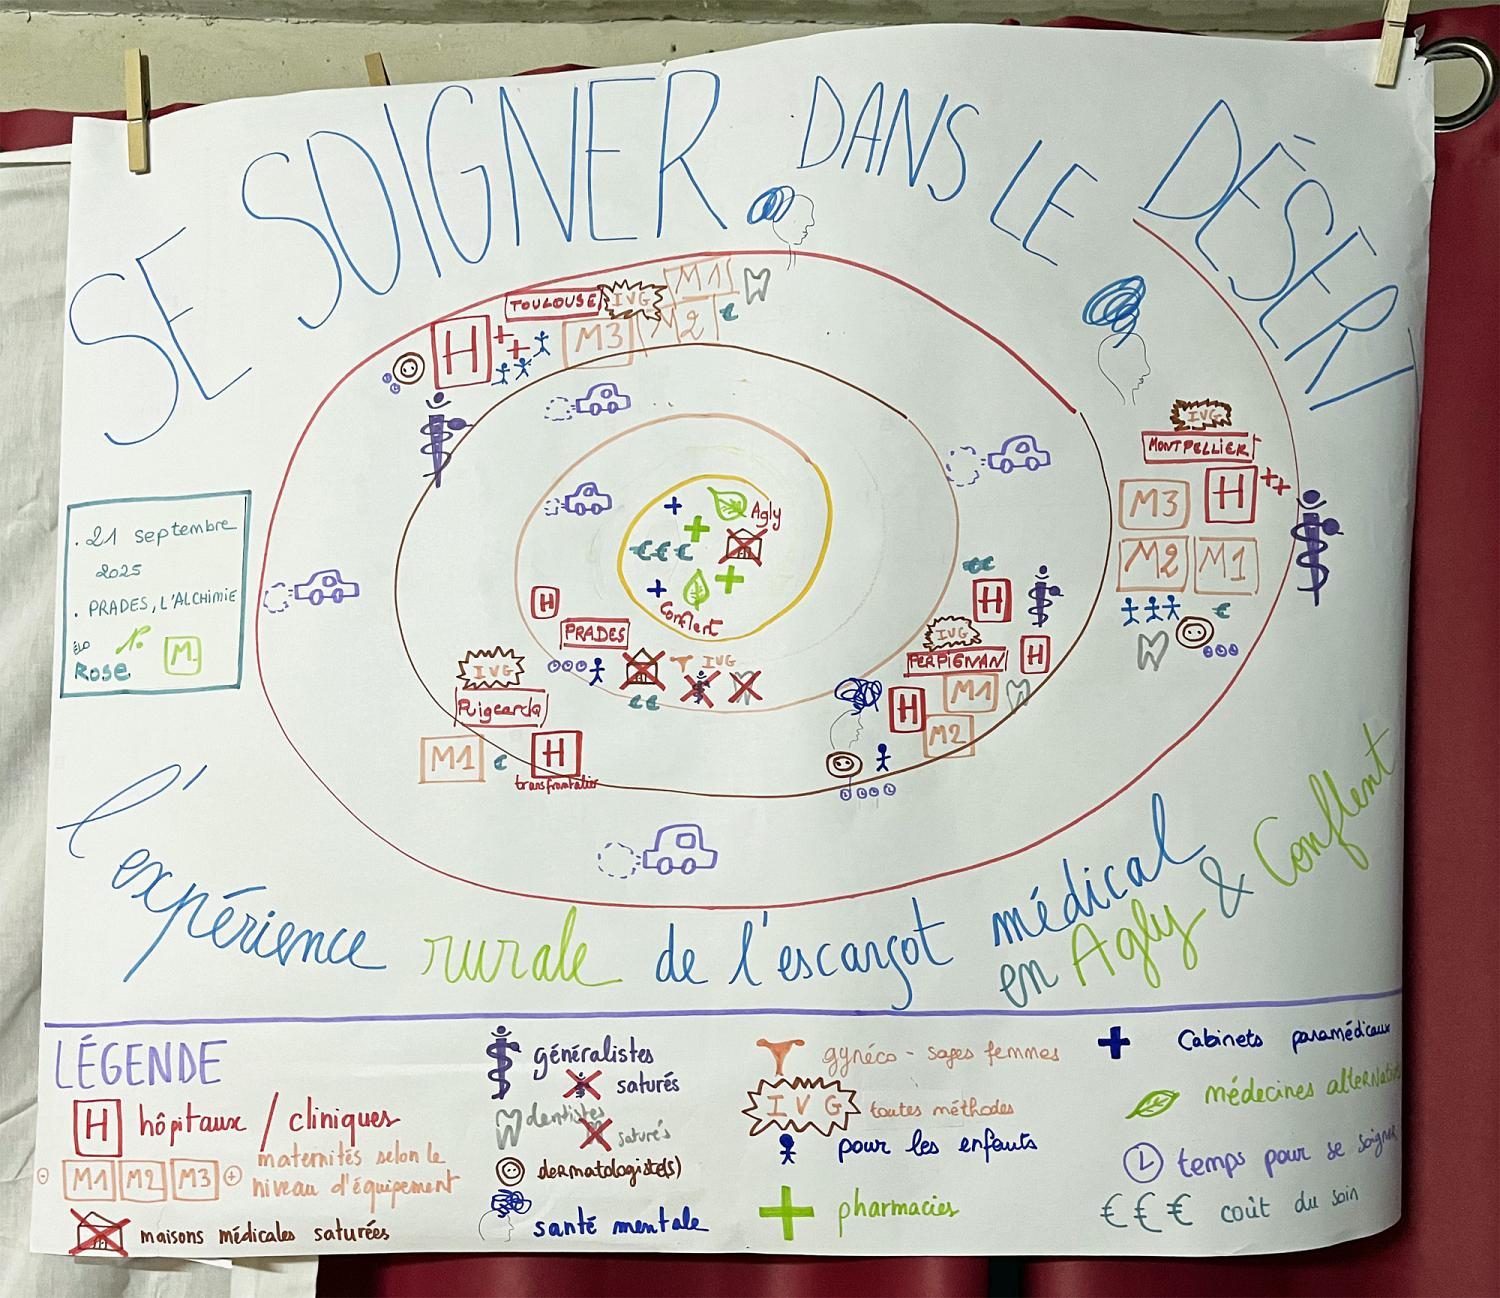 SE SOIGNER DANS LE DÉSERT
TOULOUSE
IVG
M1
H
M3
M2
€
IVG
MONTPELLIER
M3
H
M2
M1
€
Agly
€€€
Conflent
H
PRADES
IVG
€€
€€
H
IVG
PERPIGNAN
H
H
M1
M2
IVG
Puigcerda
M1
€
H
transfrontalier
. 21 septembre
2025
. PRADES, L'ALCHIMIE
ÉLO
N.
M.
Rose
l'expérience rurale de l'escargot médical
en Agly & Conflent
LÉGENDE
H hôpitaux / cliniques
M1 M2 M3 maternités selon le
niveau d'équipement
maisons médicales saturées
généralistes
saturés
dentistes
saturés
dermatologiste(s)
santé mentale
gynéco - sages femmes
IVG toutes méthodes
pour les enfants
pharmacies
Cabinets paramédicaux
médecines alternativ
temps pour se soigner
€€€ coût du soin